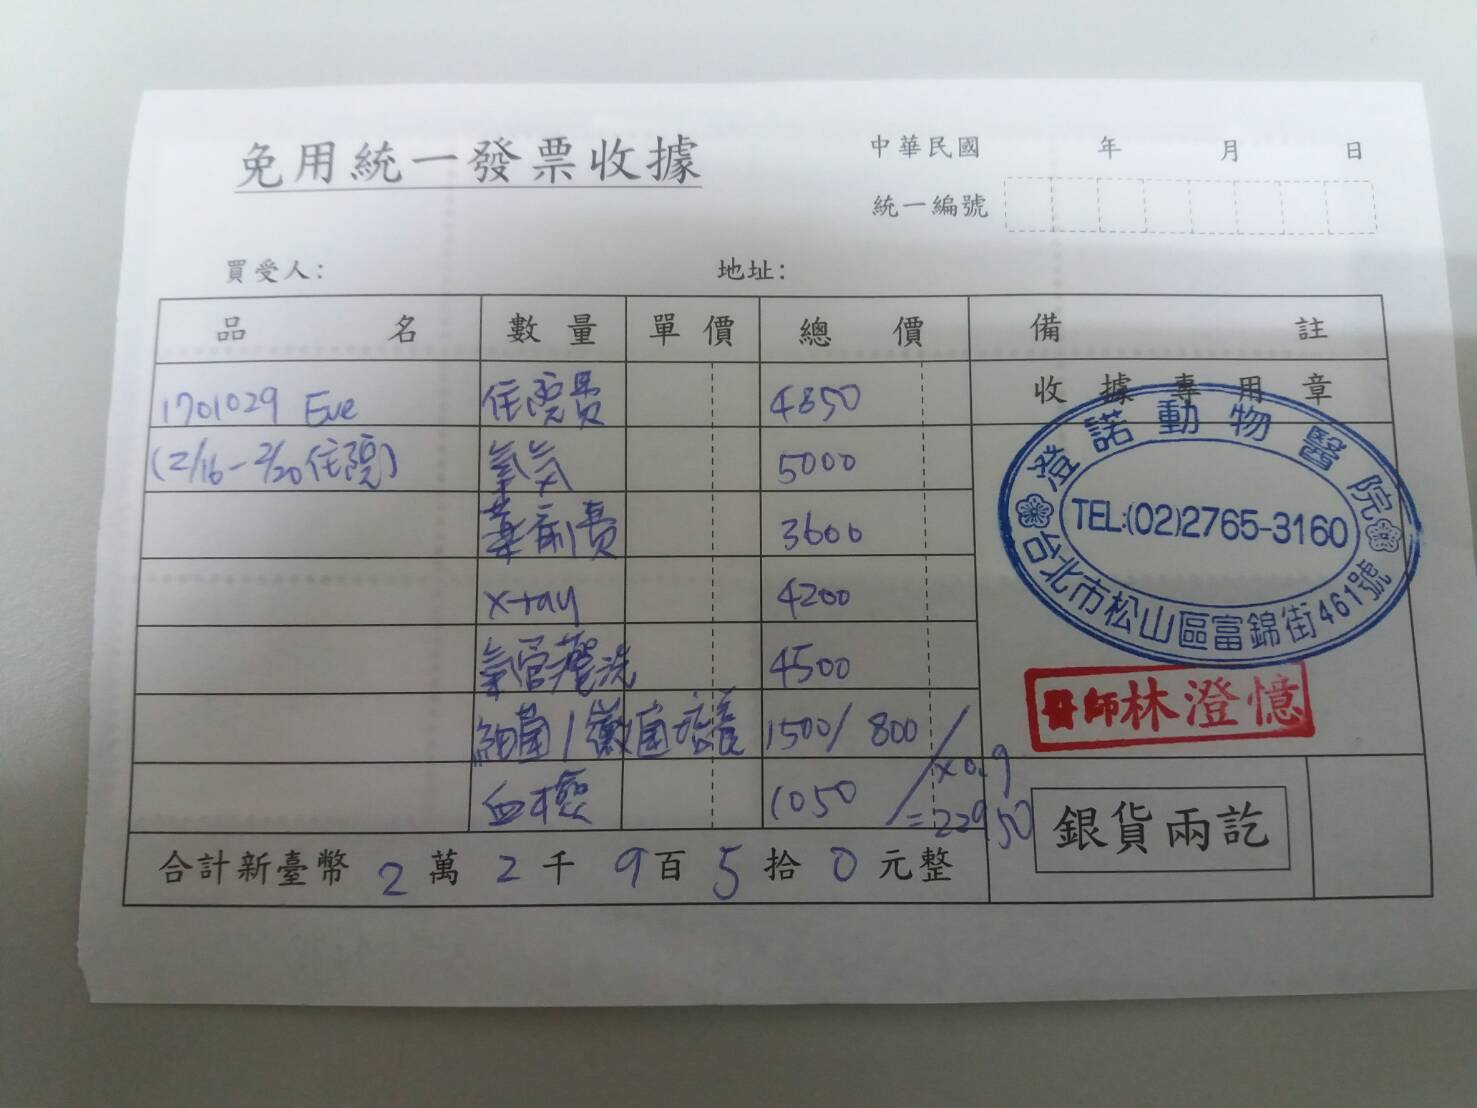 免用統一發票收據
中華民國 年 月 日
統一編號
買受人: 地址:
品 名 數量 單價 總 價 備 註
1701029 Eve 住院費 4850 收據專用章
(2/16-2/20住院) 氧氣 5000
藥劑費 3600
x-ray 4200
氣管灌洗 4500
細菌/黴菌培養 1500/ 800
血檢 1050
×0.9
=22950
合計新臺幣 2 萬 2 千 9 百 5 拾 0 元整
澄諾動物醫院
TEL:(02)2765-3160
台北市松山區富錦街461號
醫師林澄憶
銀貨兩訖